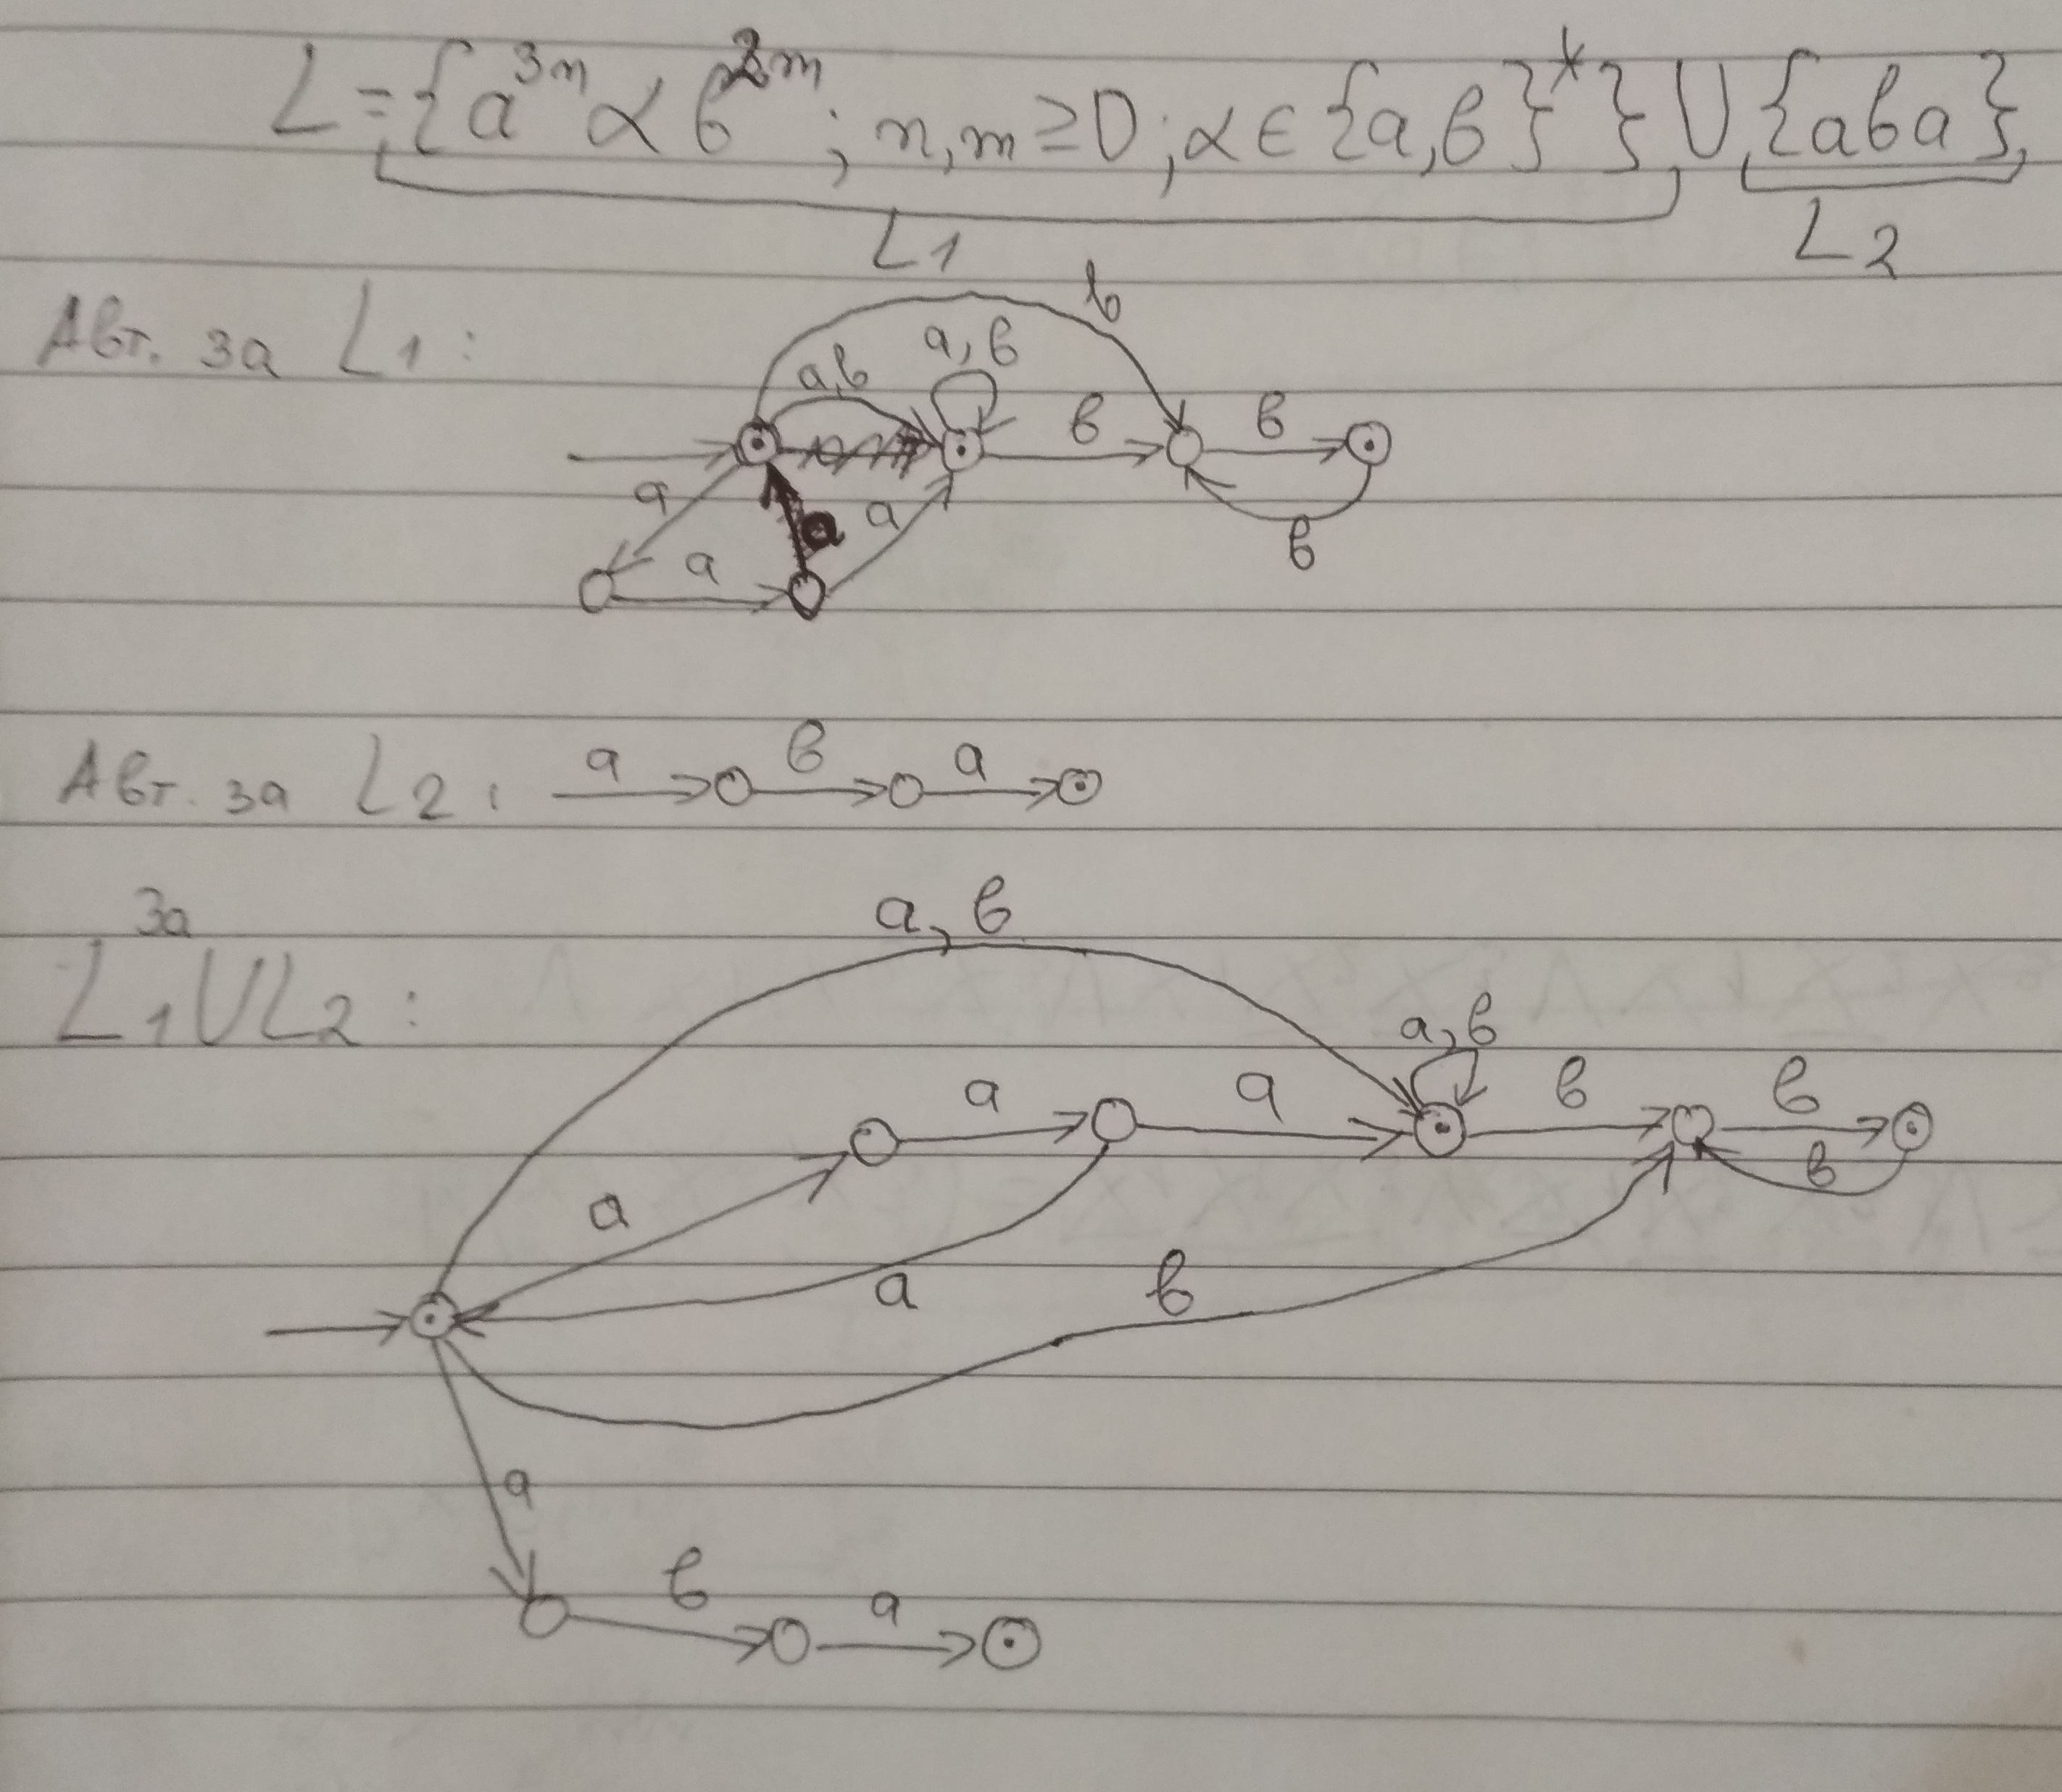 L = {a^{3n} α b^{2m}; n, m ≥ 0; α ∈ {a, b}^*} ∪ {aba},
L1 L2
Авт. за L1:
b
a, b
a,b
b b
a a
a b
a
Авт. за L2: a b a
За
L1 ∪ L2:
a, b
a, b
a a b b
b
a
a b
a
b a